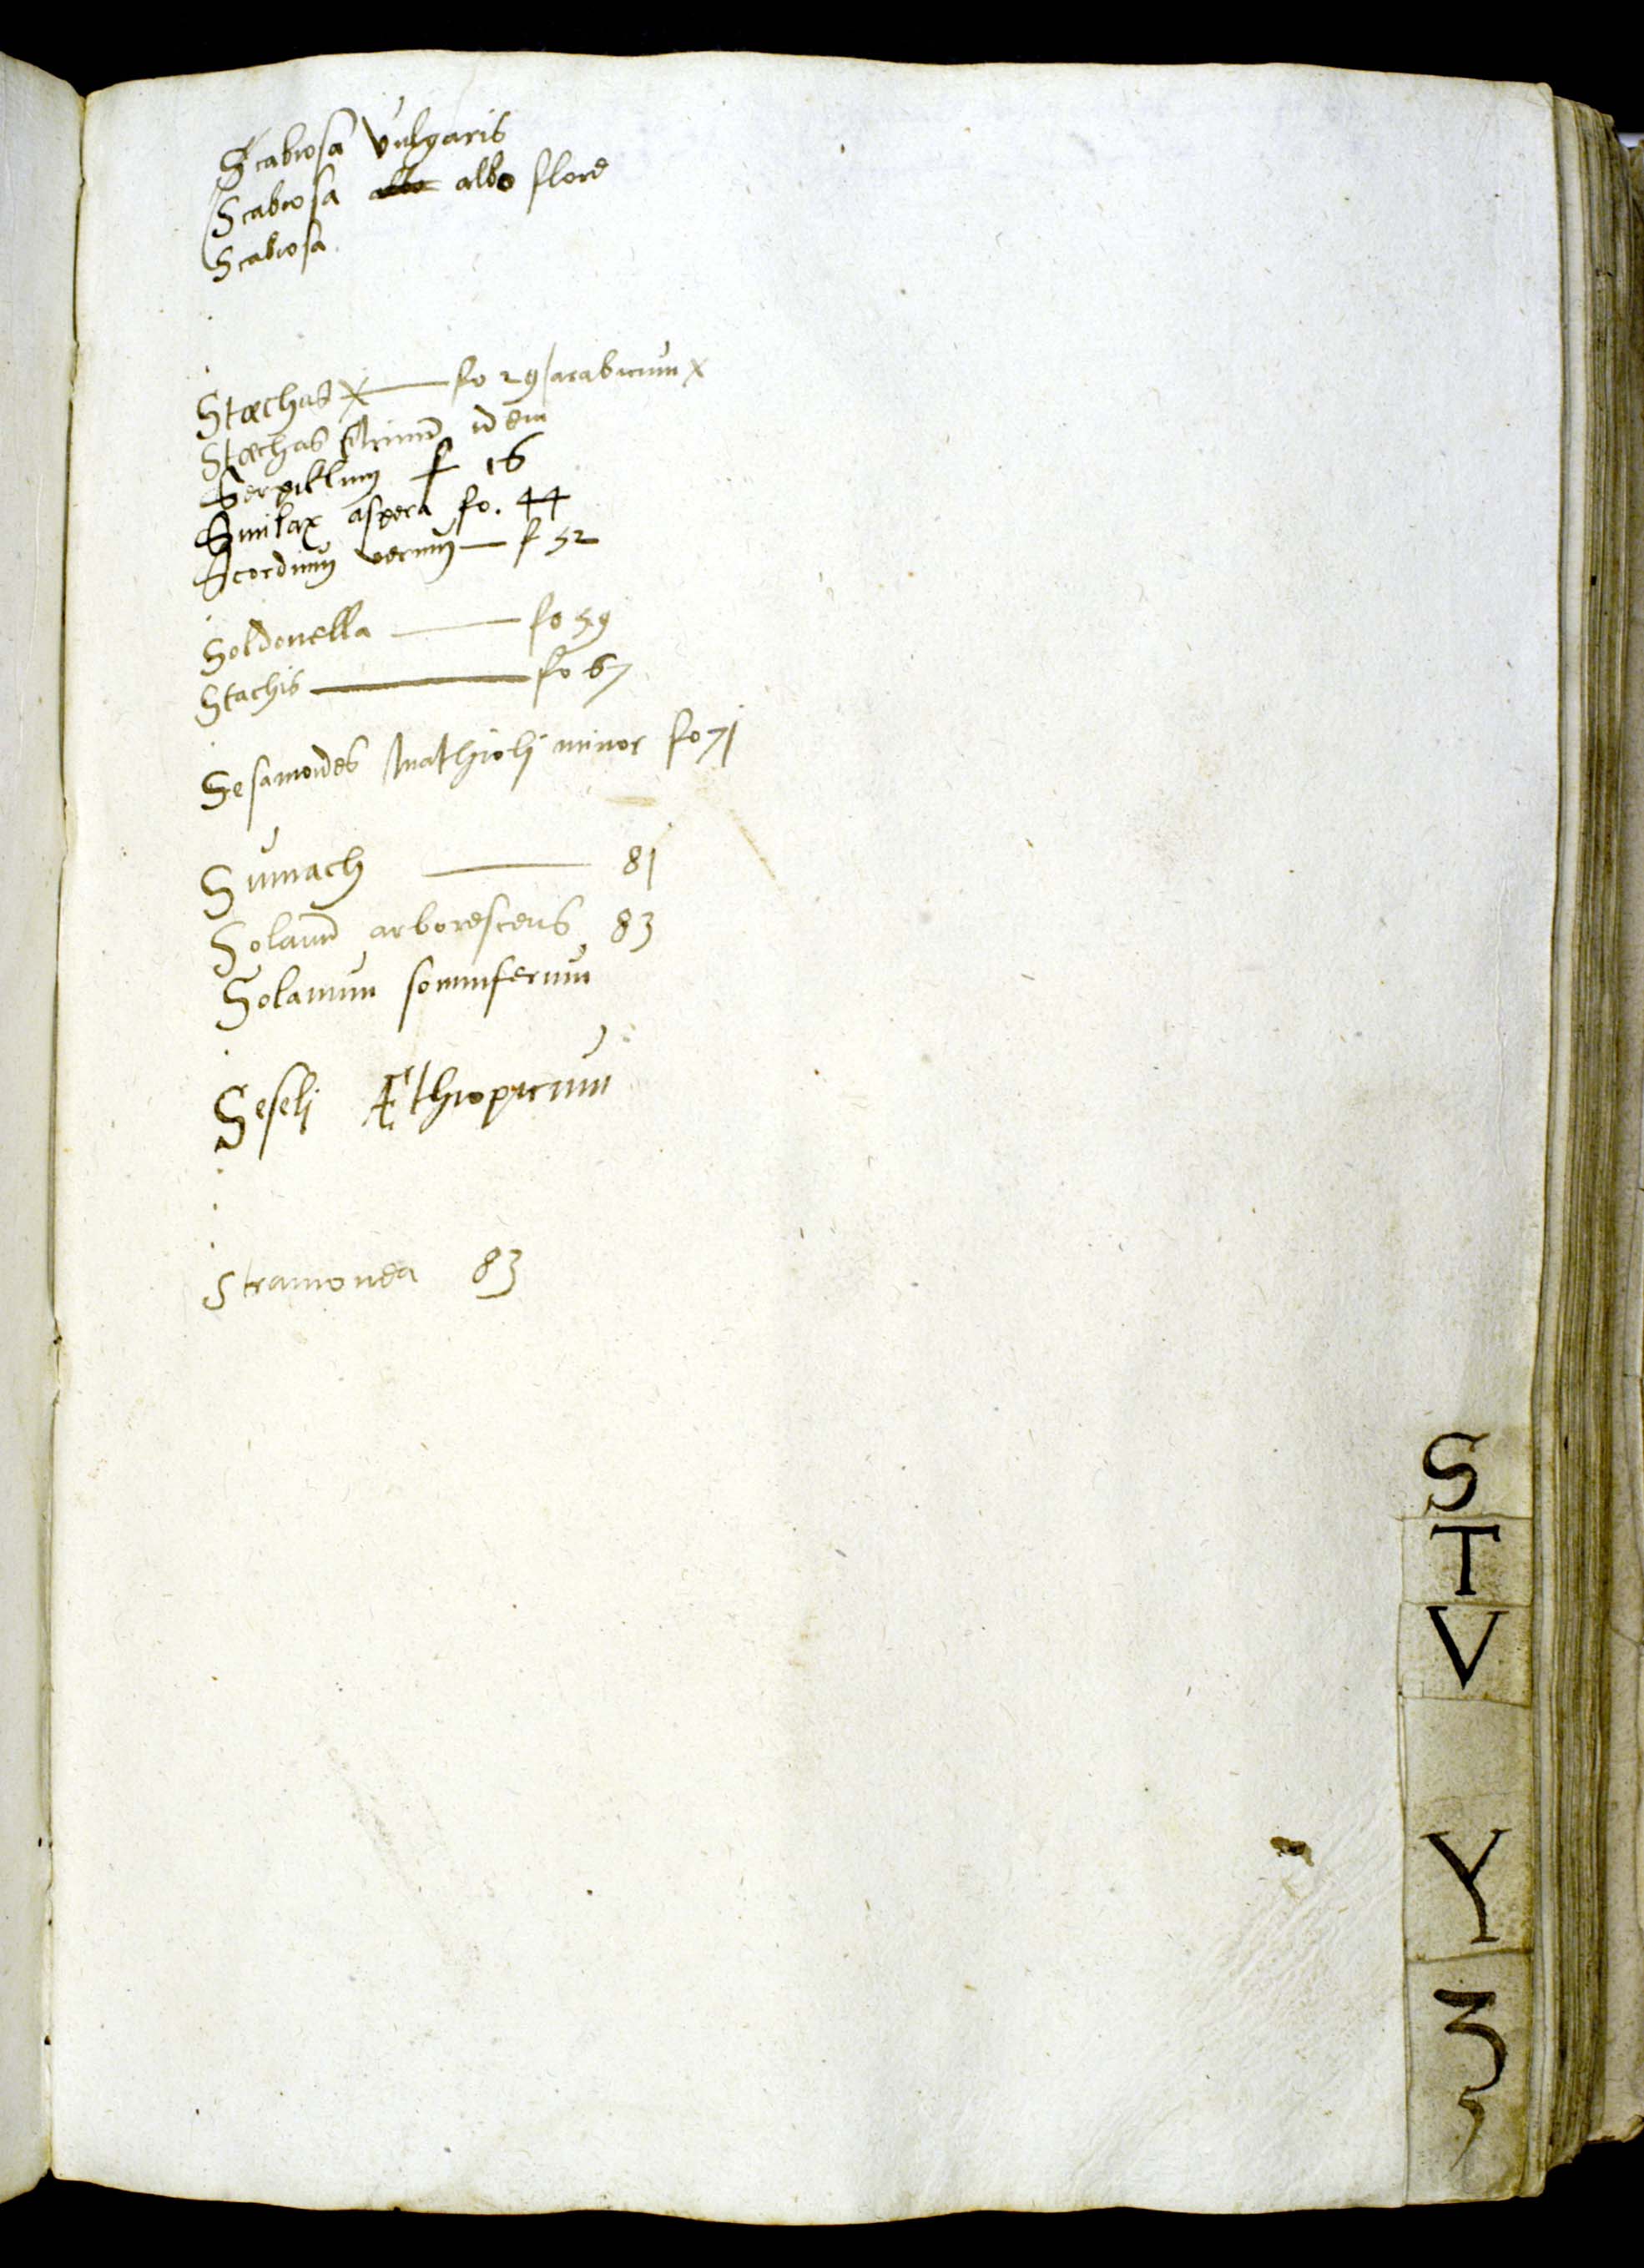 Scabiosa vulgaris
Scabiosa albo flore
Scabiosa
Stœchas x fo 29 / arabicum x
Stœchas idem
Serpillum f 16
Smilax aspera fo. 44
Scordium verum f 52
Soldonella fo 59
Stachis fo 67
Sesamoides Mathioli minor fo 71
Sumach 81
Solanū arborescens 83
Solanum somniferum
Seseli Æthiopicum
Stramonea 83
S
T
V
Y
Z